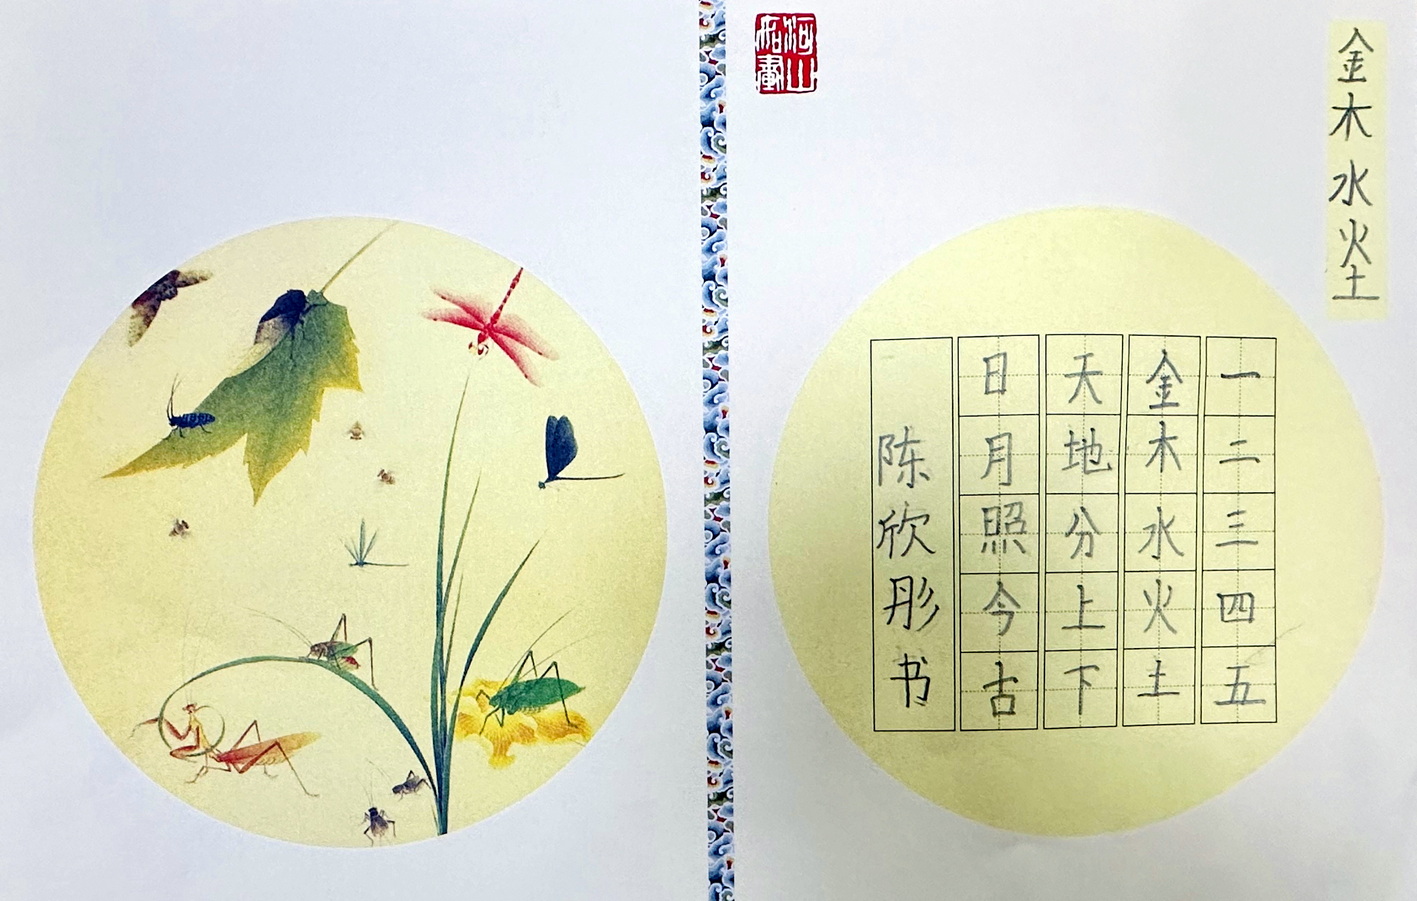 金木水火土
一二三四五
金木水火土
天地分上下
日月照今古
陈欣彤书
河山如画